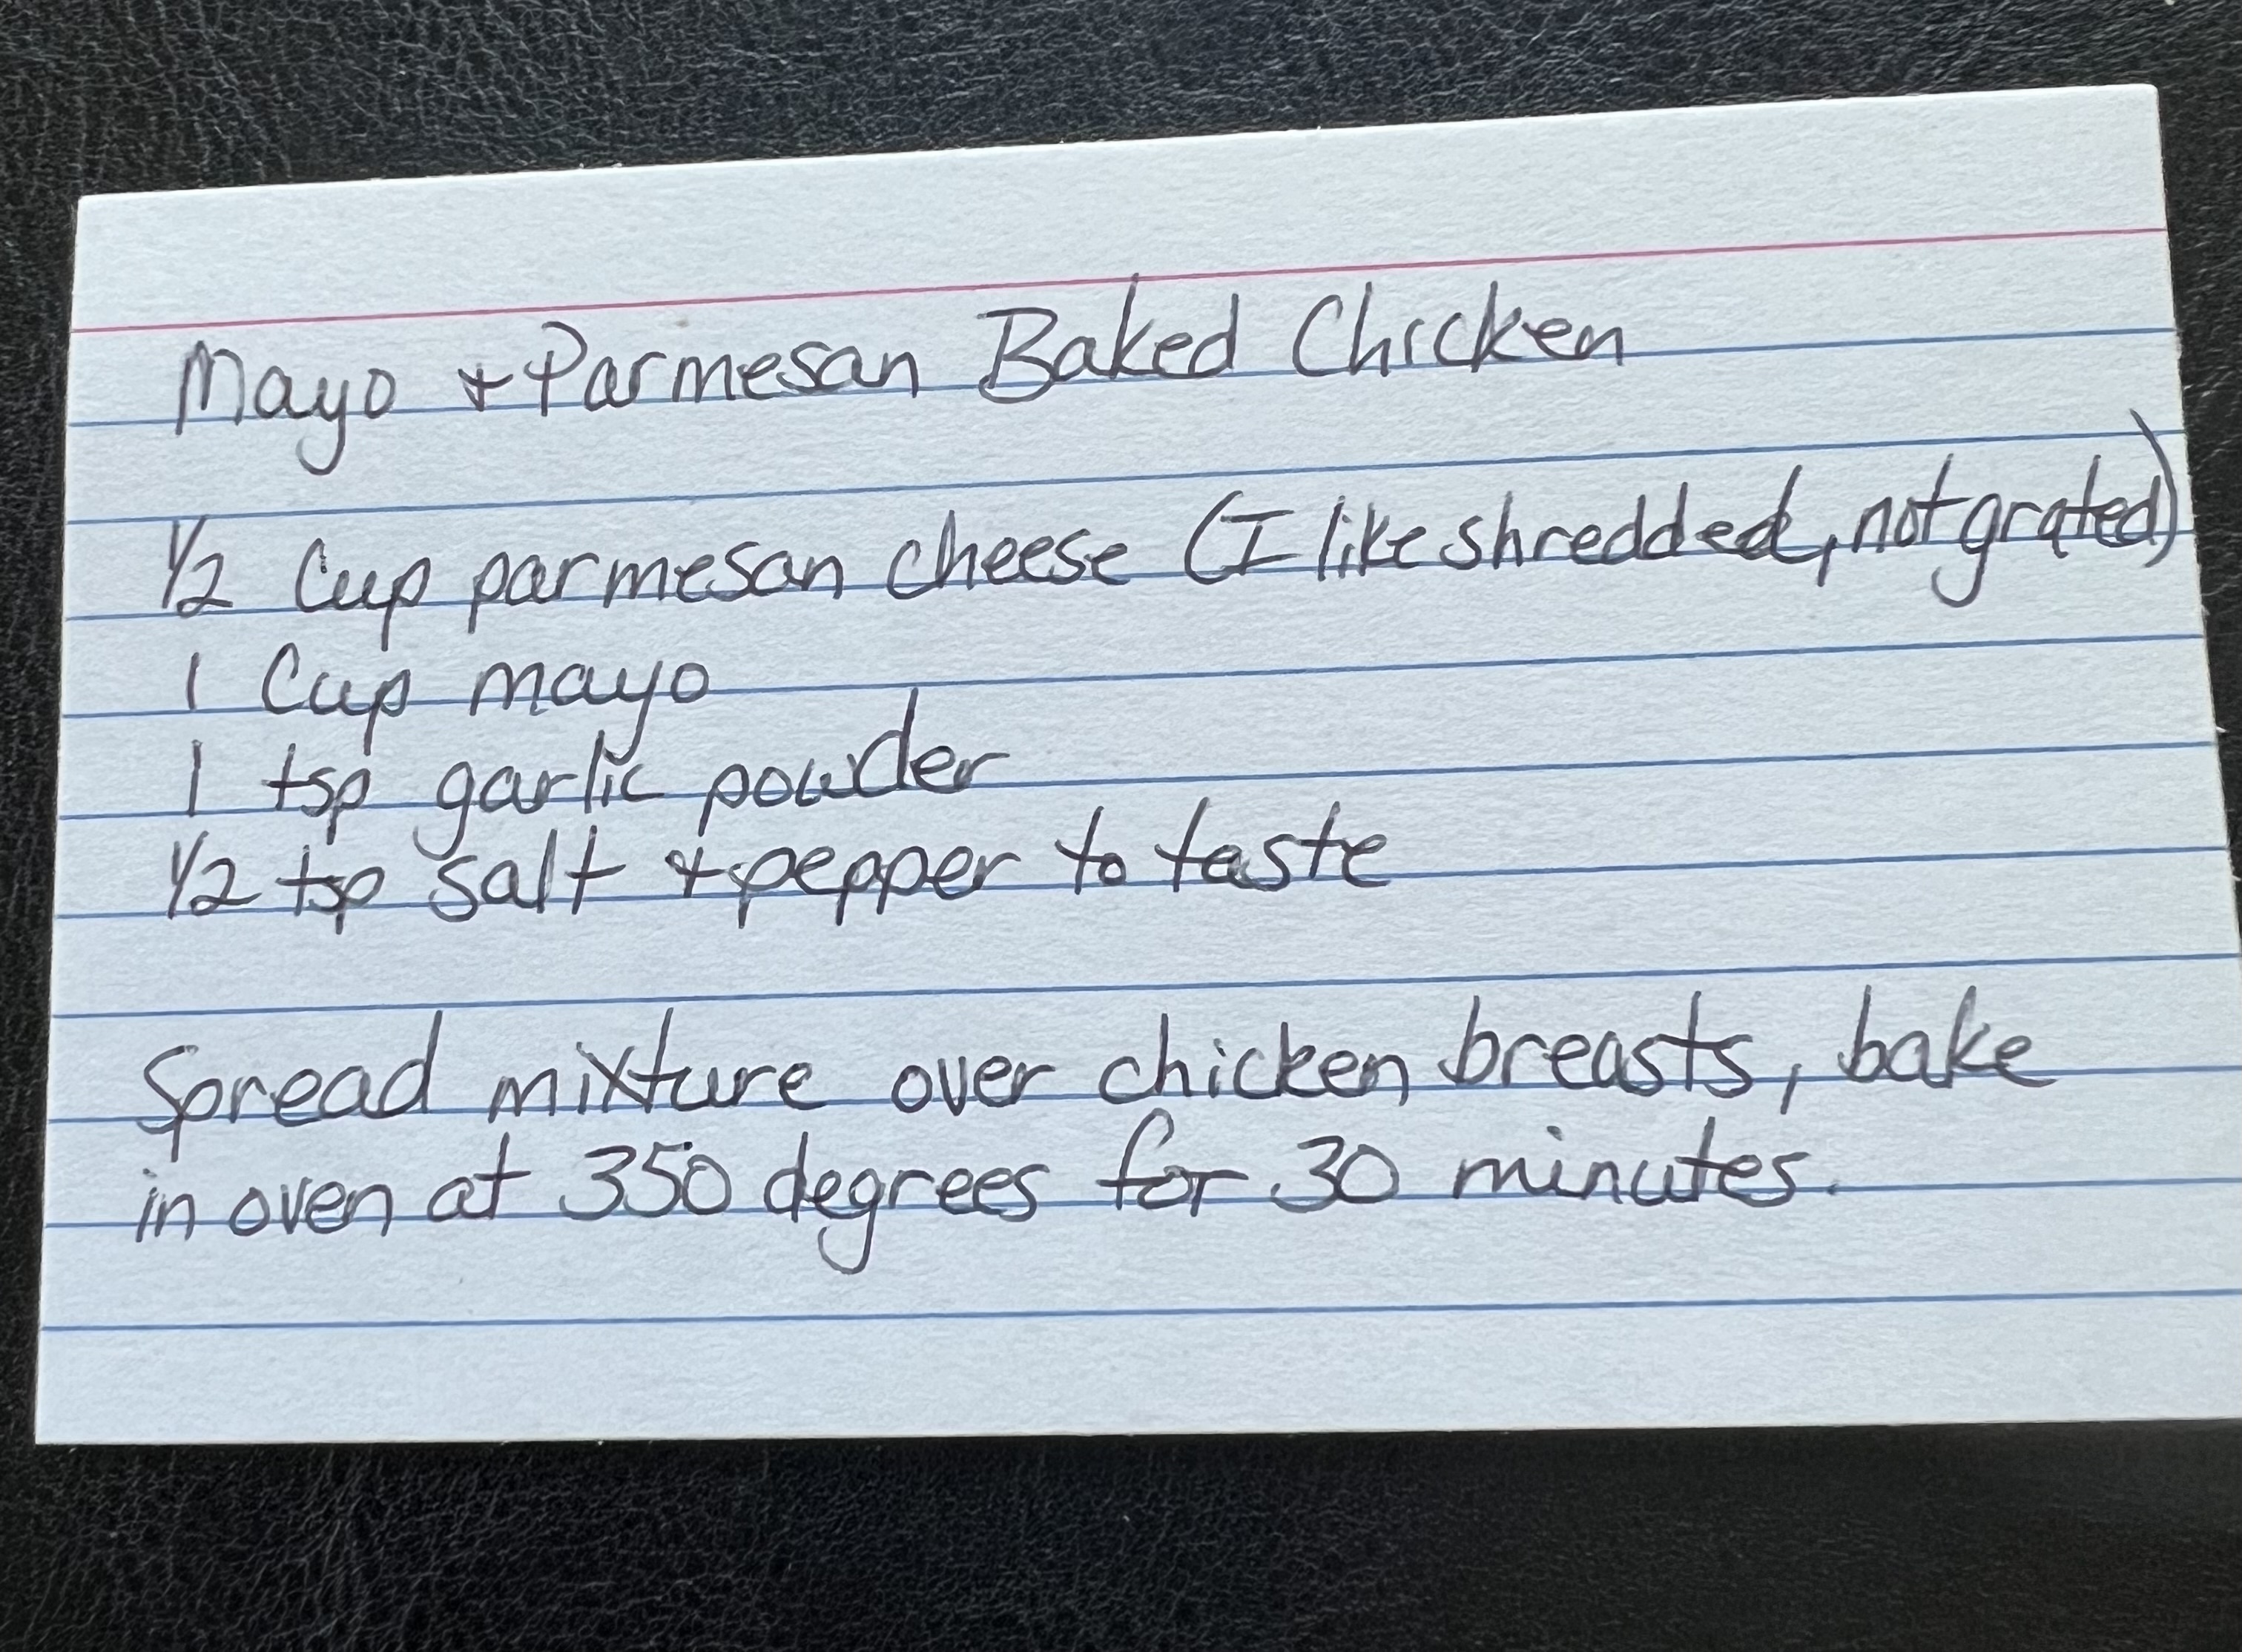 Mayo + Parmesan Baked Chicken
1/2 Cup parmesan cheese (I like shredded, not grated)
1 Cup mayo
1 tsp garlic powder
1/2 tsp salt + pepper to taste
Spread mixture over chicken breasts, bake
in oven at 350 degrees for 30 minutes.